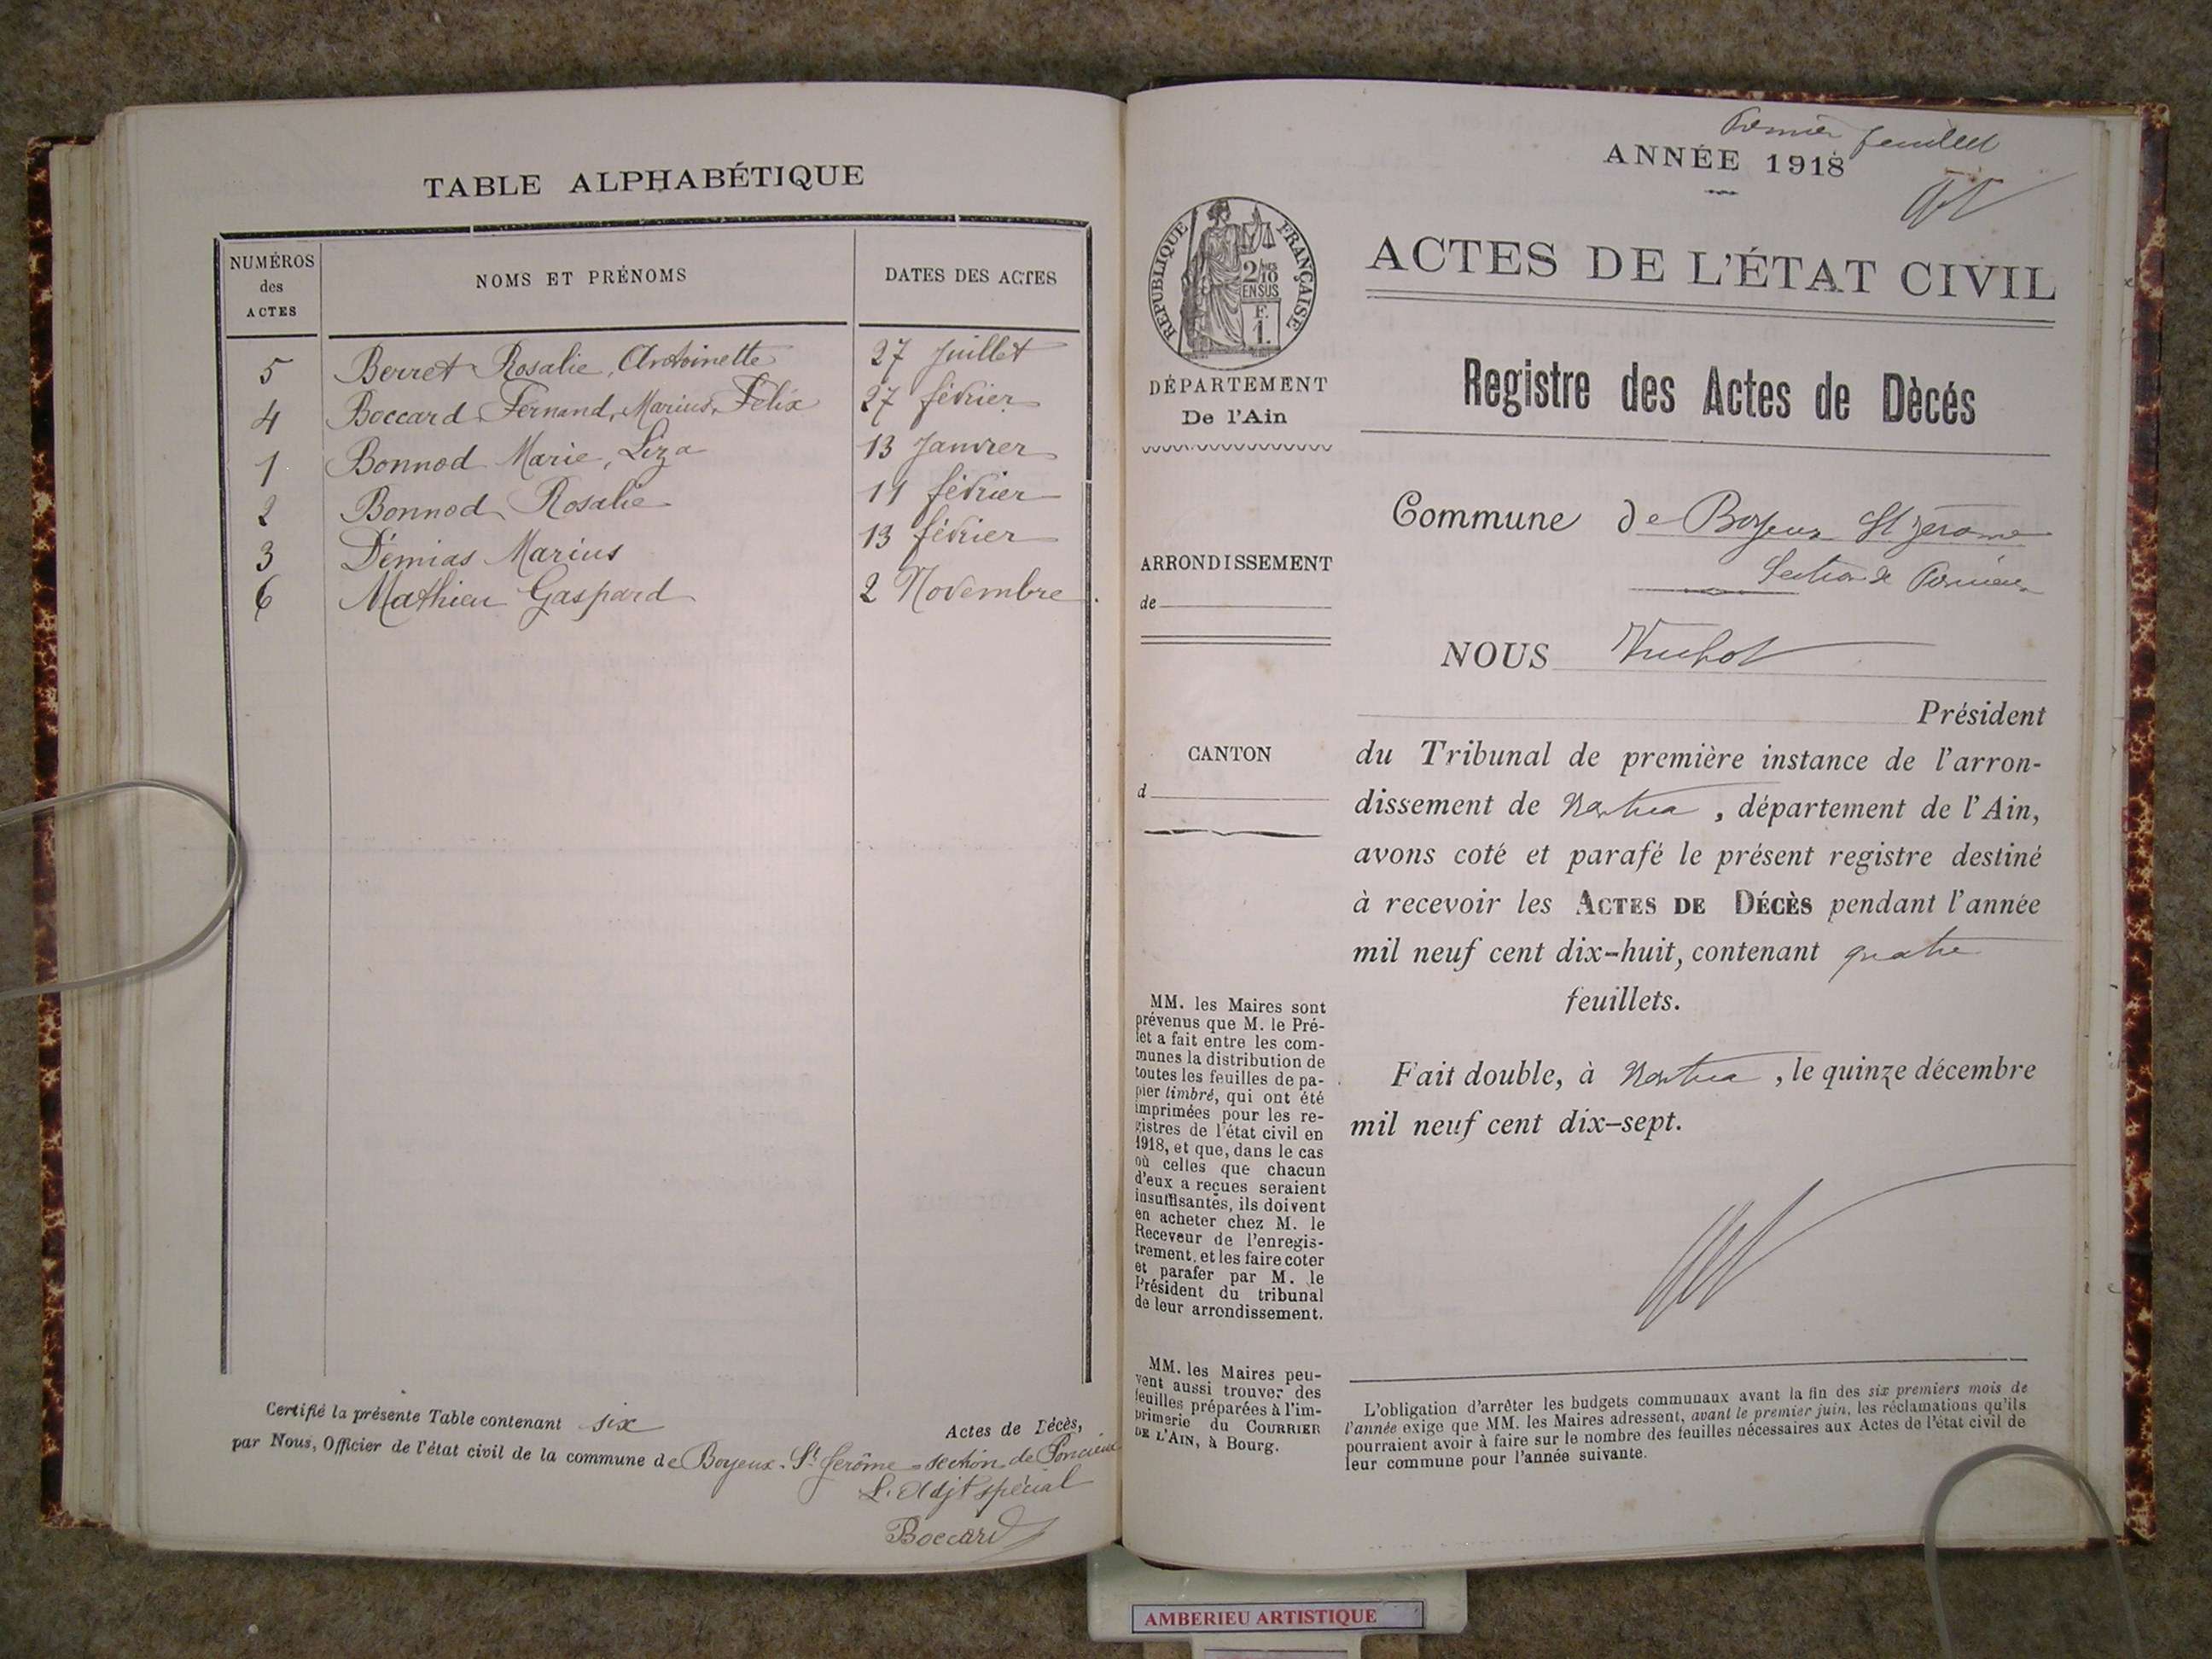 TABLE ALPHABÉTIQUE
NUMÉROS
des
ACTES
NOMS ET PRÉNOMS
DATES DES ACTES
5 Berret Rosalie, Antoinette 27 Juillet
4 Boccard Fernand, Marius, Félix 27 février
1 Bonnod Marie, Liza 13 Janvier
2 Bonnod Rosalie 11 février
3 Démias Marius 13 février
6 Mathieu Gaspard 2 Novembre.
Certifié la présente Table contenant six Actes de Décès,
par Nous, Officier de l'état civil de la commune de Boyeux-St Jerôme - section de Poncieux
L'Adjt spécial
Boccard
Premier feuillet
ANNÉE 1918
RÉPUBLIQUE FRANÇAISE
2/10
EN SUS
F.
1.
DÉPARTEMENT
De l'Ain
ARRONDISSEMENT
de
CANTON
d
MM. les Maires sont
prévenus que M. le Pré-
fet a fait entre les com-
munes la distribution de
toutes les feuilles de pa-
pier timbré, qui ont été
imprimées pour les re-
gistres de l'état civil en
1918, et que, dans le cas
où celles que chacun
d'eux a reçues seraient
insuffisantes, ils doivent
en acheter chez M. le
Receveur de l'enregis-
trement, et les faire coter
et parafer par M. le
Président du tribunal
de leur arrondissement.
MM. les Maires peu-
vent aussi trouver des
feuilles préparées à l'im-
primerie du COURRIER
DE L'AIN, à Bourg.
ACTES DE L'ÉTAT CIVIL
Registre des Actes de Dècés
Commune de Boyeux St Jérome
Section de
NOUS
Président
du Tribunal de première instance de l'arron-
dissement de Nantua, département de l'Ain,
avons coté et parafé le présent registre destiné
à recevoir les ACTES DE DÉCÈS pendant l'année
mil neuf cent dix-huit, contenant quatre
feuillets.
Fait double, à Nantua, le quinze décembre
mil neuf cent dix-sept.
L'obligation d'arrêter les budgets communaux avant la fin des six premiers mois de
l'année exige que MM. les Maires adressent, avant le premier juin, les réclamations qu'ils
pourraient avoir à faire sur le nombre des feuilles nécessaires aux Actes de l'état civil de
leur commune pour l'année suivante.
AMBERIEU ARTISTIQUE